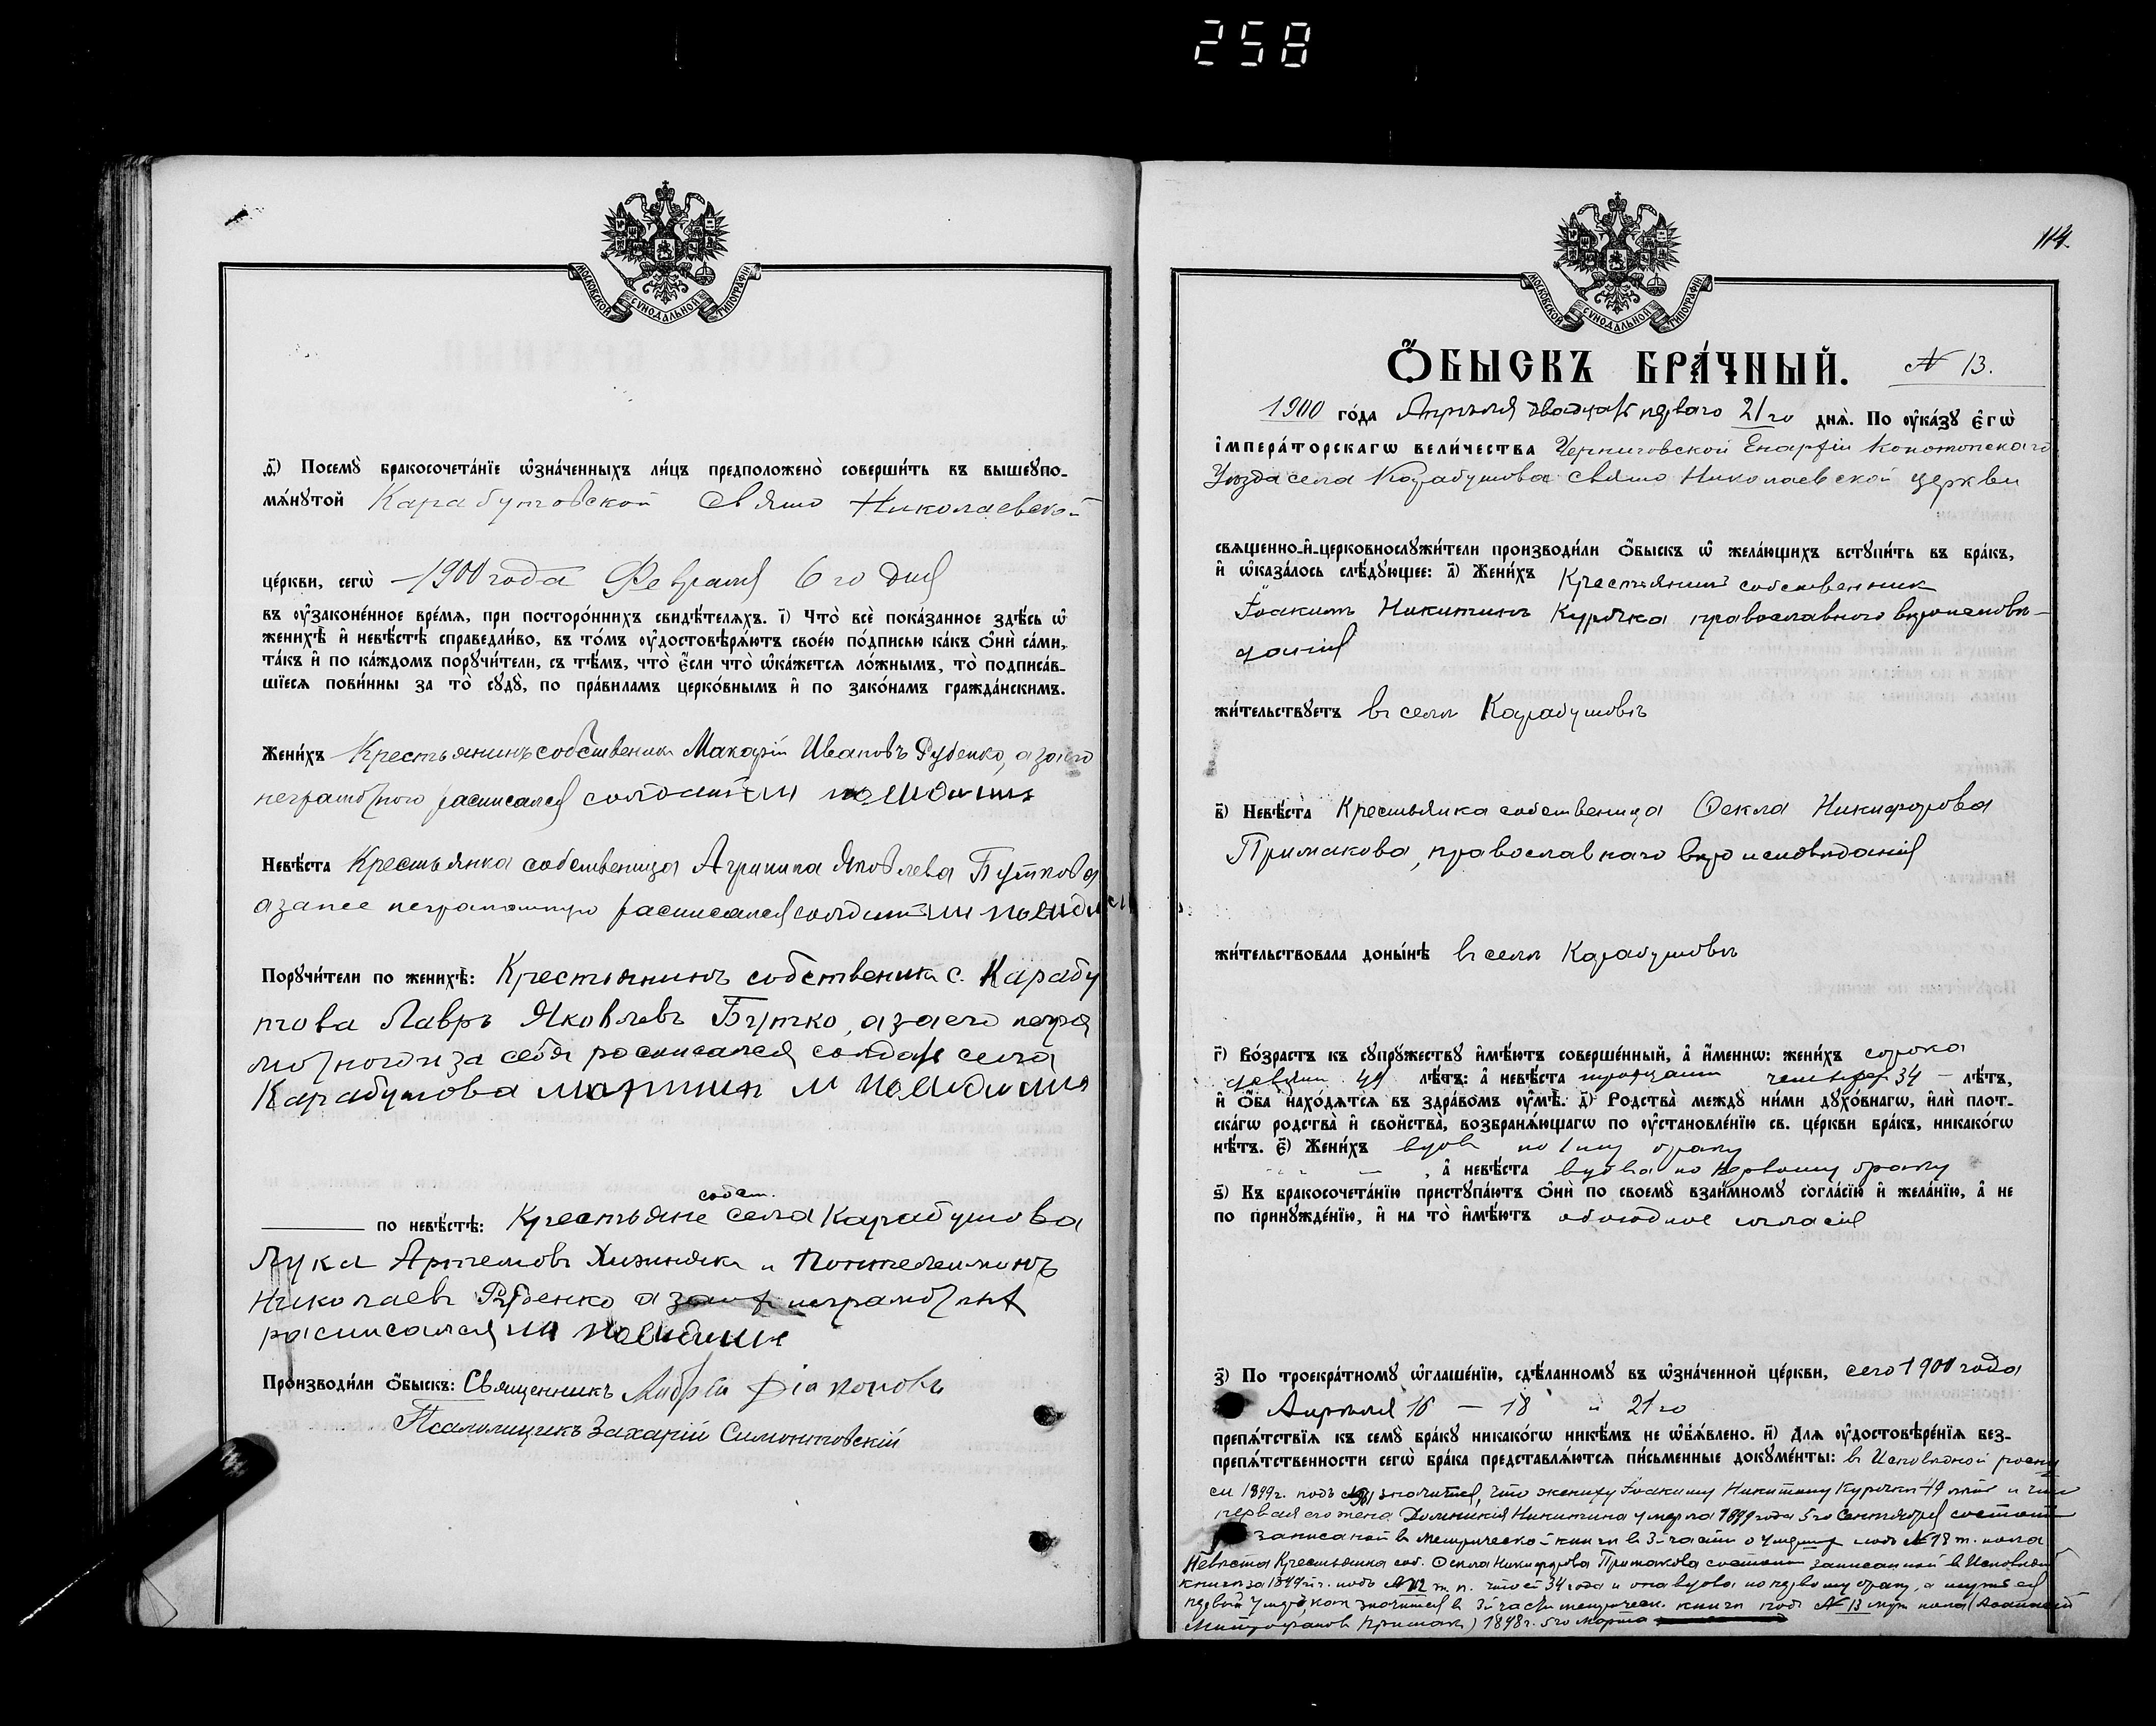 258
МОСКОВСКОЙ СУНОДАЛЬНОЙ ТИПОГРАФІИ
Ѳ҃) Посемꙋ̀ бракосочета́нїе ѡ҆зна́ченныхъ ли́цъ предположено̀ соверши́ть въ вышеꙋпо-
мѧ́нꙋтой Карабутовской Свято Николаевской
це́ркви, сегѡ̀ 1900 года Февраля 6 го дня
въ ᲂу҆законе́нное вре́мѧ, при посторо́ннихъ свидѣ́телѧхъ. і҃) Что̀ всѐ пока́занное здѣ́сь ѡ҆
женихѣ̀ и҆ невѣ́стѣ справедли́во, въ то́мъ ᲂу҆достовѣрѧ́ютъ свое́ю по́дписью ка́къ ѻ҆нѝ са́ми,
та́къ и҆ по ка́ждомъ порꙋчи́тели, съ тѣ́мъ, что̀ є҆́сли что̀ ѡ҆ка́жетсѧ ло́жнымъ, то̀ подписа́в-
шїесѧ пови́нны за то̀ сꙋдꙋ̀, по пра́виламъ церко́внымъ и҆ по зако́намъ гражда́нскимъ.
Жени́хъ Крестьянинъ собственникъ Макарій Ивановъ Рубенко, а за его
неграмотного расписался
Невѣ́ста Крестьянка собственница Агрипина Яковлева Буткова
а за нее неграмотную расписался
Порꙋчи́тели по женихѣ̀: Крестьянинъ собственникъ с. Карабу
това Лавръ Яковлевъ Бутко, а за его негра
мотного и за себя росписался солдатъ села
Карабутова
собст.
по невѣ́стѣ: Крестьяне села Карабутова
Лука Артемовъ Хижнякъ и Пантелеимонъ
Николаевъ Рубенко а неграмотных
расписался
Производи́ли ѻ҆́быскъ: Священникъ Андрей Діаконовъ
Псаломщикъ Захарій Симонтовскій
114.
МОСКОВСКОЙ СУНОДАЛЬНОЙ ТИПОГРАФІИ
Ѻ҆БЫСКЪ БРА́ЧНЫЙ. № 13.
1900 го́да Апрѣля двадцать перваго 21 го днѧ̀. По ᲂу҆ка́зꙋ є҆гѡ̀
і҆мпера́торскагѡ вели́чества Черниговской Епархіи Конотопскаго
Уѣзда села Карабутова Свято Николаевской церкви
свѧще́нно-и҆-церковнослꙋжи́тели производи́ли ѻ҆́быскъ ѡ҆ жела́ющихъ встꙋпи́ть въ бра́къ,
и҆ ѡ҆каза́лось слѣ́дꙋющее: а҃) Жени́хъ Крестьянинъ собственник
Іоакимъ Никитинъ Курочка православного вѣроисповѣ-
данія
жи́тельствꙋетъ въ селѣ Карабутовѣ
в҃) Невѣ́ста Крестьянка собственница Ѳекла Никифорова
Примакова, православнаго вѣроисповѣданія
жи́тельствовала доны́нѣ въ селѣ Карабутовѣ
г҃) Во́зрастъ къ сꙋпрꙋ́жествꙋ и҆мѣ́ютъ соверше́нный, а҆ и҆́менно: жени́хъ сорока
девяти 49 лѣ́тъ: а҆ невѣ́ста тридцати четырех 34 – лѣ́тъ,
и҆ ѻ҆́ба нахо́дѧтсѧ въ здра́вомъ ᲂу҆мѣ̀. д҃) Родства̀ междꙋ ни́ми дꙋхо́внагѡ, и҆лѝ пло́т-
скагѡ родства̀ и҆ сво́йства, возбранѧ́ющагѡ по ᲂу҆становле́нїю св. це́ркви бра́къ, никако́гѡ
нѣ́тъ. є҃) Жени́хъ вдовъ по 1 му браку
, а҆ невѣ́ста вдова по первому браку
ѕ҃) Къ бракосочета́нїю пристꙋпа́ютъ ѻ҆нѝ по своемꙋ̀ взаи́мномꙋ согла́сїю и҆ жела́нїю, а҆ не
по принꙋжде́нїю, и҆ на то̀ и҆мѣ́ютъ обоюдное согласія
з҃) По троекра́тномꙋ ѡ҆глаше́нїю, сдѣ́ланномꙋ въ ѡ҆зна́ченной це́ркви, сего 1900 года
Апрѣля 16 – 18 и 21 го
препѧ́тствїѧ къ семꙋ̀ бра́кꙋ никако́гѡ никѣ́мъ не ѡ҆б̾ѧ́влено. и҃) Для ᲂу҆достовѣре́нїѧ без-
препѧ́тственности сегѡ̀ бра́ка представлѧ́ютсѧ пи́сьменные докꙋме́нты: въ Исповѣдной роспи
си 1899 г. подъ значится, что жениху Іоакиму Никитину Курочкѣ 49 лѣтъ и что
первая его жена Домникія Никитина умерла 1899 года 5 го Сентября состоитъ
записаной въ Метрической книгѣ въ 3 й части о умершихъ подъ № 18 ж. пола
Невѣста Крестьянка соб. Ѳекла Никифорова Примакова состоитъ записанной въ Исповѣдной
книгѣ за 1899 г. подъ ж. п. что ей 34 года и она вдова по первому браку, а мужъ ея
первый умеръ, как значится в 3 й части метрическ. книги подъ № 13 муж пола
Митрофановъ Примакъ) 1898 г. 5 го марта